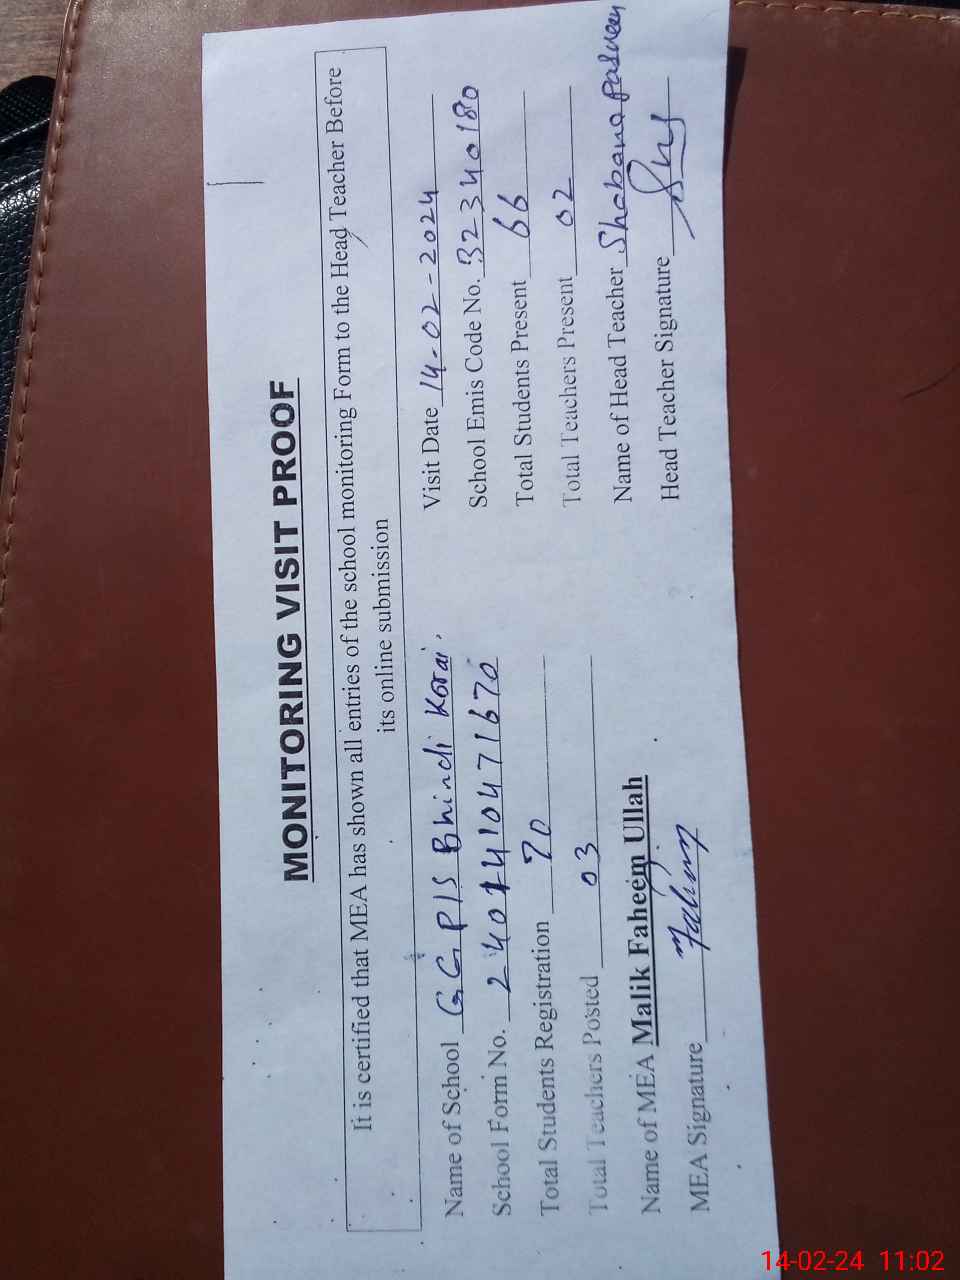 MONITORING VISIT PROOF
It is certified that MEA has shown all entries of the school monitoring Form to the Head Teacher Before
its online submission
Name of School GGP/S Bhindi Korai. Visit Date 14-02-2024
School Form No. 2401410471670 School Emis Code No. 32340180
Total Students Registration 70 Total Students Present 66
Total Teachers Posted 03 Total Teachers Present 02
Name of MEA Malik Faheem Ullah Name of Head Teacher Shabana Parveen
MEA Signature Fahim Head Teacher Signature
14-02-24 11:02